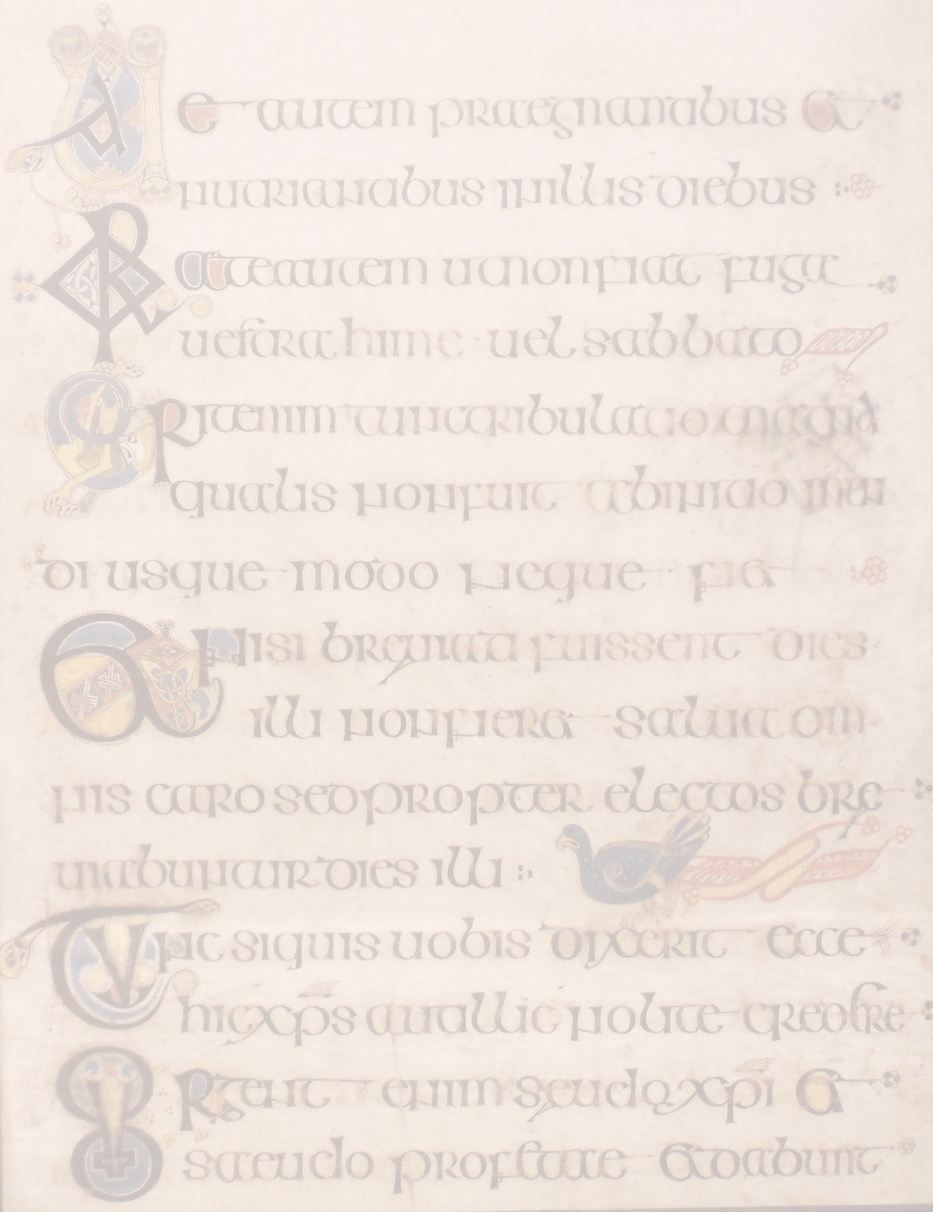 Uae autem praegnantibus et
nutriantibus inillis diebus
Orate autem utnonfiat fuga
uestra hime uel sabbato
Erit enim tunc tribulatio magna
qualis nonfuit abinitio mun
di usque modo neque fiet
Et nisi breuiata fuissent dies
illi nonfieret salua om
nis caro sed propter electos bre
uiabuntur dies illi
Tunc siquis uobis dixerit ecce
hic xps aut illic nolite credere
Surgent enim seudo xpi et
seudo profetae et dabunt